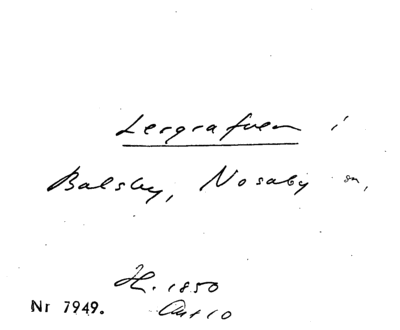 Lergrafven i
Balsby, Nosaby sn,
H. 1850
Nr 7949.